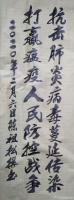 抗击肺炎病毒蔓延传染
打赢瘟疫人民防控战争
二〇二〇年二月六日